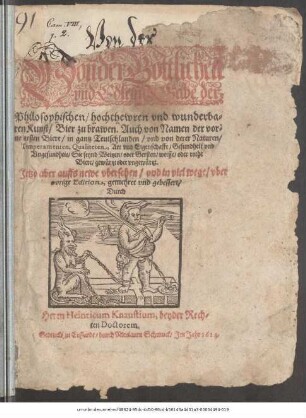 91
Von der
Göttlichen
und Edlen Gabe der
Philosophischen / hochthewren vnd wunderba-
ren Kunst / Bier zu brawen. Auch von Namen der vor-
nemsten Biere / in gantz Teutschlanden / vnd von deren Naturen/
Temperamenten, Qualiteten, Art vnd Eigenschafft / Gesundheit vnd
Vngesundheit / Sie seyend Weitzen oder Gersten / weisse oder rothe
Bier / gewürtzt oder vngewürtzt.
Jetzo aber auffs newe vbersehen / vnd in viel wege / vber
vorige Edition, gemehret vnd gebessert /
Durch
Herrn Heinricum Knaustium, beyder Rech-
ten Doctorem.
Gedruckt zu Erffurdt / durch Schmuck / Im Jahr 1614.